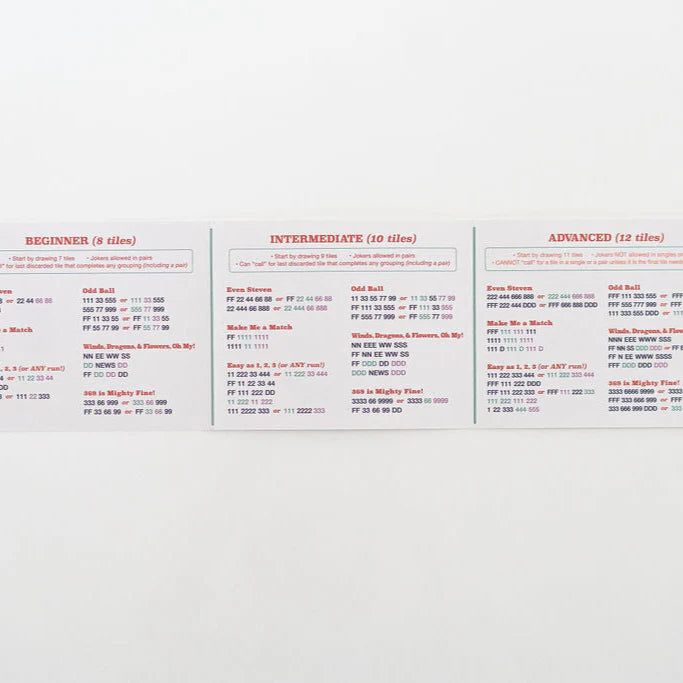 BEGINNER (8 tiles)
• Start by drawing 7 tiles • Jokers allowed in pairs
for last discarded tile that completes any grouping (including a pair)
or 22 44 66 88
Odd Ball
111 33 555 or 111 33 555
555 77 999 or 555 77 999
FF 11 33 55 or FF 11 33 55
FF 55 77 99 or FF 55 77 99
a Match
Winds, Dragons, & Flowers, Oh My!
NN EE WW SS
DD NEWS DD
FF DD DD DD
, 2, 3 (or ANY run!)
or 11 22 33 44
or 111 22 333
369 is Mighty Fine!
333 66 999 or 333 66 999
FF 33 66 99 or FF 33 66 99
INTERMEDIATE (10 tiles)
• Start by drawing 9 tiles • Jokers allowed in pairs
• Can "call" for last discarded tile that completes any grouping (including a pair)
Even Steven
FF 22 44 66 88 or FF 22 44 66 88
22 444 66 888 or 22 444 66 888
Make Me a Match
FF 1111 1111
1111 11 1111
Easy as 1, 2, 3 (or ANY run!)
11 222 33 444 or 11 222 33 444
FF 11 22 33 44
FF 111 222 DD
11 222 11 222
111 2222 333 or 111 2222 333
Odd Ball
11 33 55 77 99 or 11 33 55 77 99
FF 111 33 555 or FF 111 33 555
FF 555 77 999 or FF 555 77 999
Winds, Dragons, & Flowers, Oh My!
NN EEE WW SSS
FF NN EE WW SS
FFF DD DD DDD
DDD NEWS DDD
369 is Mighty Fine!
3333 66 9999 or 3333 66 9999
FF 33 66 99 DD
ADVANCED (12 tiles)
• Start by drawing 11 tiles • Jokers NOT allowed in singles or
• CANNOT "call" for a tile in a single or a pair unless it is the final tile
Even Steven
222 444 666 888 or 222 444 666 888
FFF 222 444 DDD or FFF 666 888 DDD
Make Me a Match
FFF 111 111 111
1111 1111 1111
111 D 111 D 111 D
Easy as 1, 2, 3 (or ANY run!)
111 222 333 444 or 111 222 333 444
FFF 111 222 DDD
FFF 111 222 333 or FFF 111 222 333
111 222 111 222
1 22 333 444 555
Odd Ball
FFF 111 333 555 or FFF
FFF 555 777 999 or FFF
111 333 555 DDD or 111
Winds, Dragons, & Flowers
NNN EEE WWW SSS
FF NN SS DDD DDD or FF
FF N EE WWW SSSS
FFF DDD DDD DDD
369 is Mighty Fine!
3333 6666 9999 or 3333
FFF 333 666 999 or FFF
333 666 999 DDD or 333